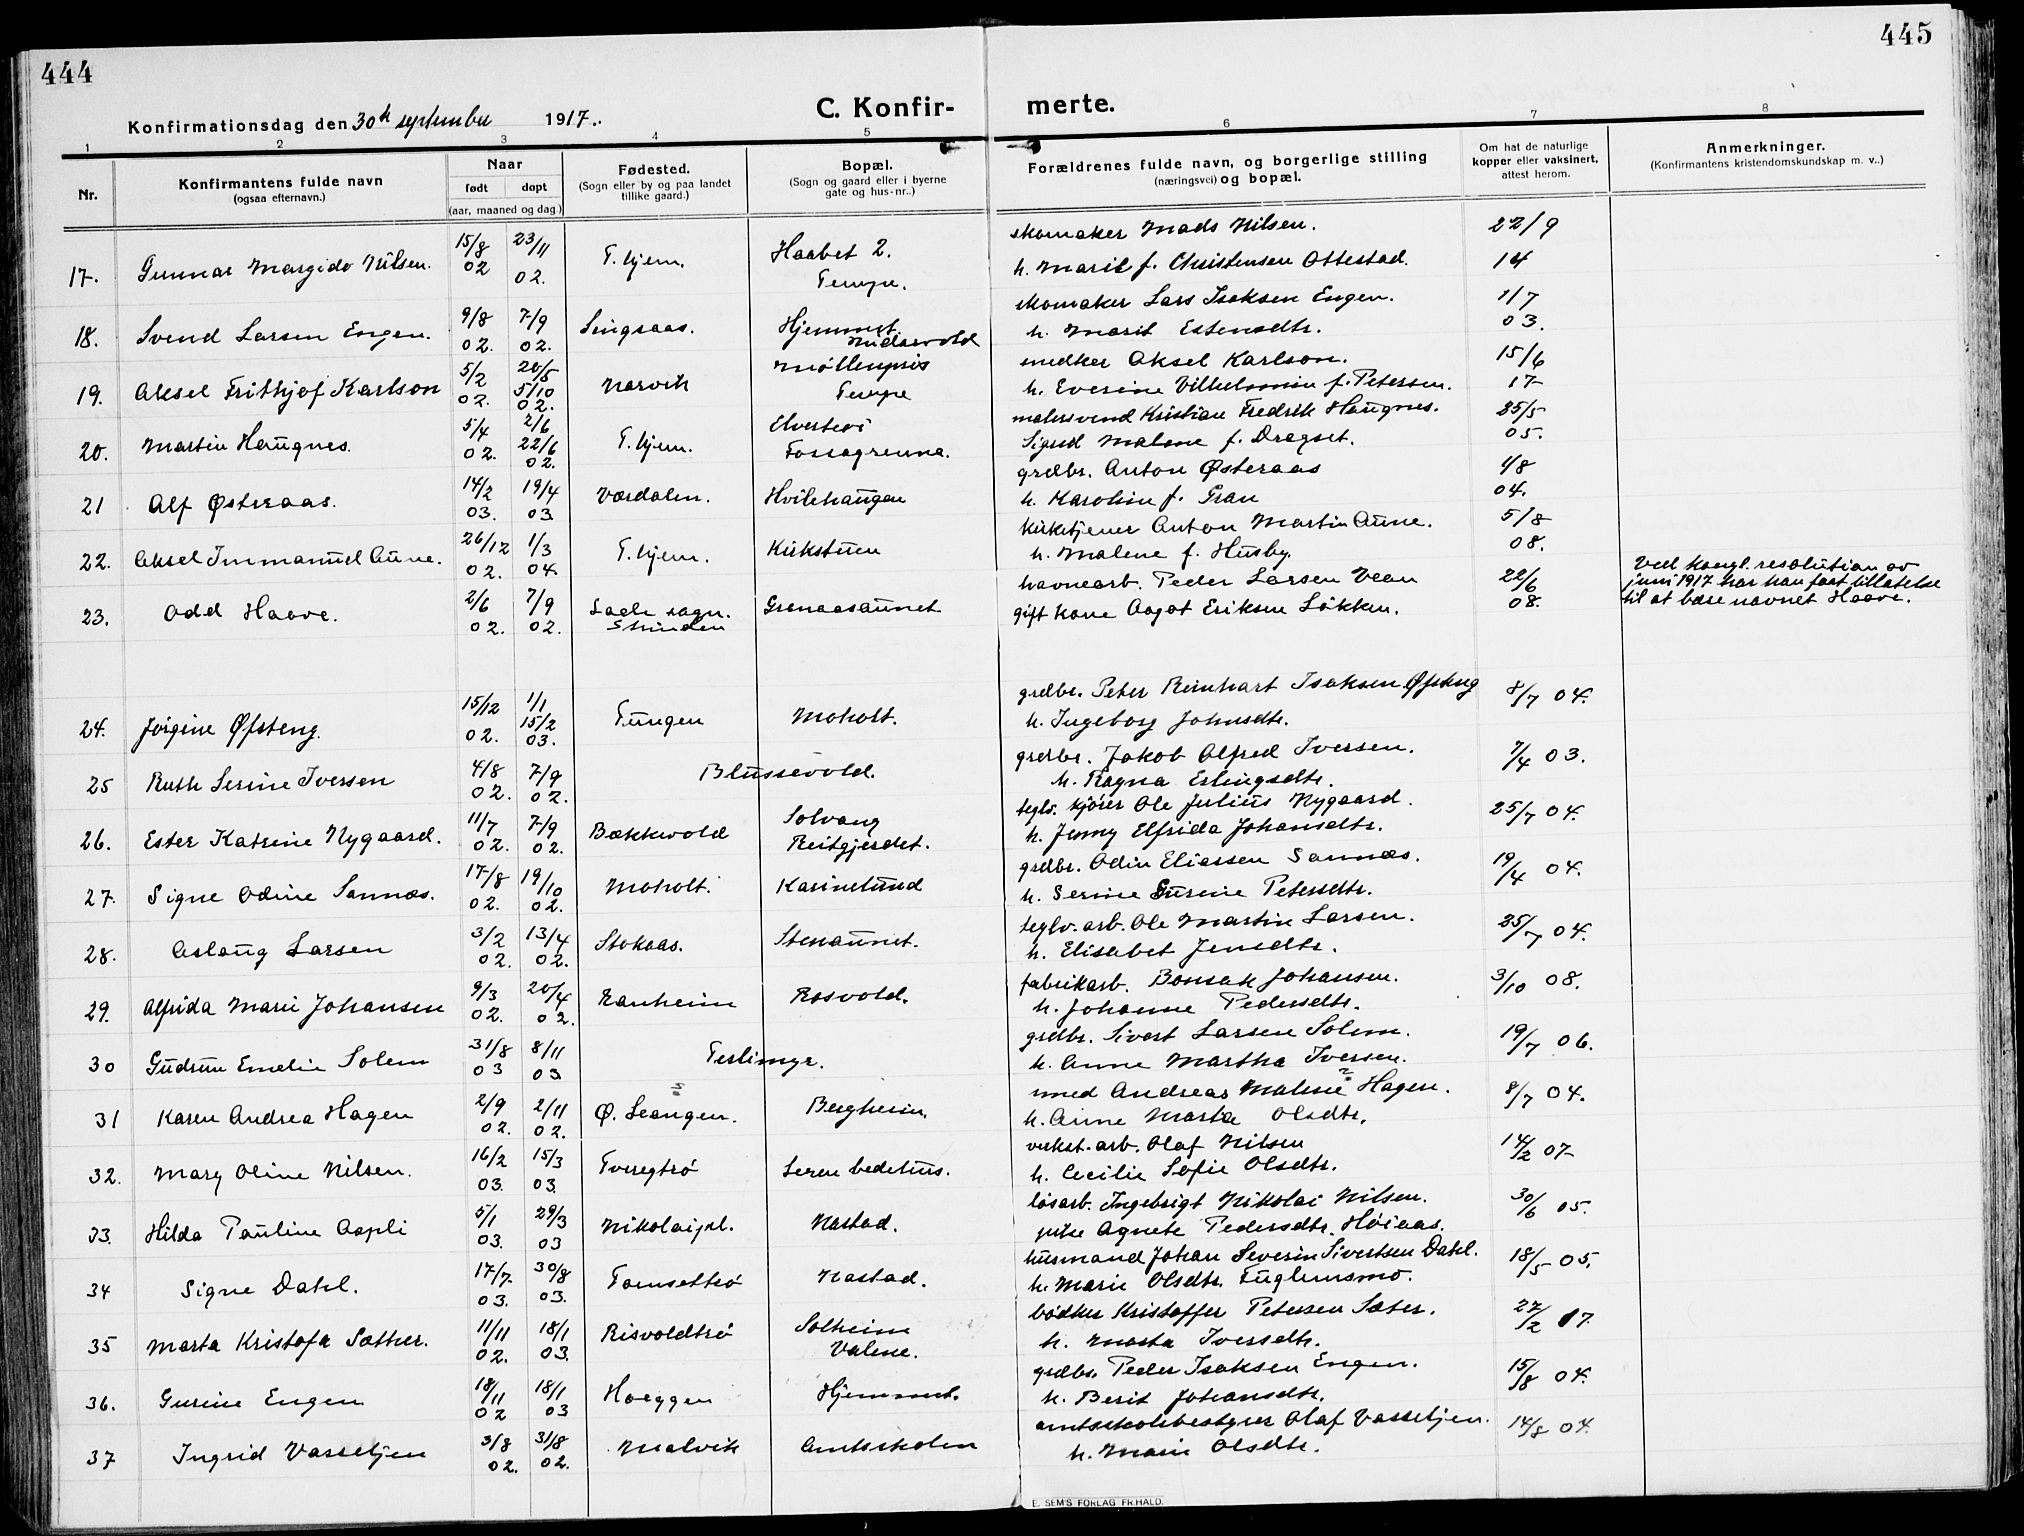 444
445
Konfirmationsdag den 30te september 1917.
C. Konfir-
merte.
1 2 3 4 5 6 7 8
Nr.
Konfirmantens fulde navn
(ogsaa efternavn.)
Naar
født døpt
(aar, maaned og dag.)
Fødested.
(Sogn eller by og paa landet
tillike gaard.)
Bopæl.
(Sogn og gaard eller i byerne
gate og hus-nr..)
Forældrenes fulde navn, og borgerlige stilling
(næringsvei) og bopæl.
Om hat de naturlige
kopper eller vaksinert,
attest herom.
Anmerkninger.
(Konfirmantens kristendomskundskap m. v..)
17. Gunnar Margido Nilsen. 15/8 02 23/11 02. T.hjem. Haabet 2. Tempe. skomaker Mads Nilsen. 22/9
h. Marit f. Christensen Ottestad. 14
18. Svend Larsen Engen. 9/8 02. 7/9 02. Singsaas. Hjemmet. Nidarvold skomaker Lars Isaksen Engen. 1/7
h. Marit Estensdtr. 03.
19. Aksel Frithjof Karlson 5/2 02. 20/5 5/10 02. Narvik Møllenpris Tempe snedker Aksel Karlson. 15/6
h. Everine Vilhelmine f. Petersen. 17
20. Martin Haugnes. 5/4 02. 2/6 22/6 02. T.hjem. Elvertevi Fossegrenna. malersvend Kristian Fredrik Haugnes. 25/5
Sigrid Malene f. Dragset. 05.
21 Alf Østeraas. 14/2 03. 19/4 03. Værdalen. Hvilehaugen grdbr. Anton Østeraas 1/8
h. Karoline f. Gran 04.
22. Aksel Immanuel Aune. 26/12 02. 1/3 04 T.hjem. Kirkstuen kirketjener Anton Martin Aune. 5/8
h. Malene f. Husby. 08.
23. Odd Haave. 2/6 02. 7/9 02. Lade sogn. Strinden Granaasaunet havnearb. Peder Larsen Vean 22/6
gift kone Aagot Eriksen Løkken. 08.
Ved kongl. resolution av
juni 1917 har han faat tillatelse
til at bære navnet Haave.
24. Jørgine Øfsteng. 15/12 02. 1/1 15/2 03. Tungen Moholt. grdbr. Peter Reinhart Isaksen Øfsteng 8/7 04.
h. Ingeborg Johnsdtr.
25 Ruth Serine Iversen 4/8 02. 7/9 02. Blussevold. grdbr. Jakob Alfred Iversen. 7/4 03.
h. Ragna Erlingsdtr.
26. Ester Katrine Nygaard. 11/7 02. 7/9 02. Bækkvold Solvang Reitgjerdet. teglv. kjører Ole Julius Nygaard. 25/7 04.
h. Jenny Elfrida Johansdtr.
27. Signe Odine Sannæs. 17/8 02. 19/10 02. Moholt. Karinelund grdbr. Odin Eliassen Sannæs. 19/4 04.
h. Serine Gurine Petersdtr.
28. Aslaug Larsen 3/2 02. 13/4 02. Stokaas. Stenaunet. teglv. arb. Ole Martin Larsen. 25/7 04.
h. Elisabet Jensdtr.
29. Alfrida Marie Johansen 9/3 02. 20/4 02. Ranheim Rosvold. fabrikarb. Bonsak Johansen. 3/10 08.
h. Johanne Pedersdtr.
30 Gudrun Emelie Solem 31/8 03 8/11 03 Teslimyr. grdbr. Sivert Larsen Solem. 19/7 06.
h. Anne Martha Iversen.
31 Karen Andrea Hagen 2/9 02. 2/11 02. Ø. Leangen. Bergheim. smed Andreas Malene Hagen. 8/7 04.
h. Anne Marta Olsdtr.
32. Mary Oline Nilsen. 16/2 03. 15/3 03. Tveregtrø Leren bedehus. verkst. arb. Olaf Nilsen 14/2 07
h. Cecilie Sofie Olsdtr.
33. Hilda Pauline Aspli 5/1 03. 29/3 03 Nikolaipl. Nastad. løsarb. Ingebrigt Nikolai Nilsen. 30/6 05.
pike Agnete Pedersdtr. Høiaas.
34 Signe Dahl. 17/7. 03. 30/8 03. Tomsettrø Nastad. husmand Johan Severin Sivertsen Dahl. 18/5 05.
h. Marie Olsdtr. Fuglemsmo.
35 Marta Kristofa Sæther. 11/11 02. 18/1 03. Risvoldtrø Solheim Valene. bødker Kristoffer Petersen Sæter. 27/2 17.
h. Marta Iversdtr.
36. Gurine Engen 18/11 02 18/1 03 Hoeggen Hjemmet. grdbr. Peder Isaksen Engen. 15/8 04.
h. Berit Johansdtr.
37 Ingrid Vasseljen 3/8 02. 31/8 02. Malvik Amtsskolen amtsskolebestyrer Olaf Vasseljen. 14/8 04.
h. Marie Olsdtr.
E. SEM'S FORLAG FR.HALD.